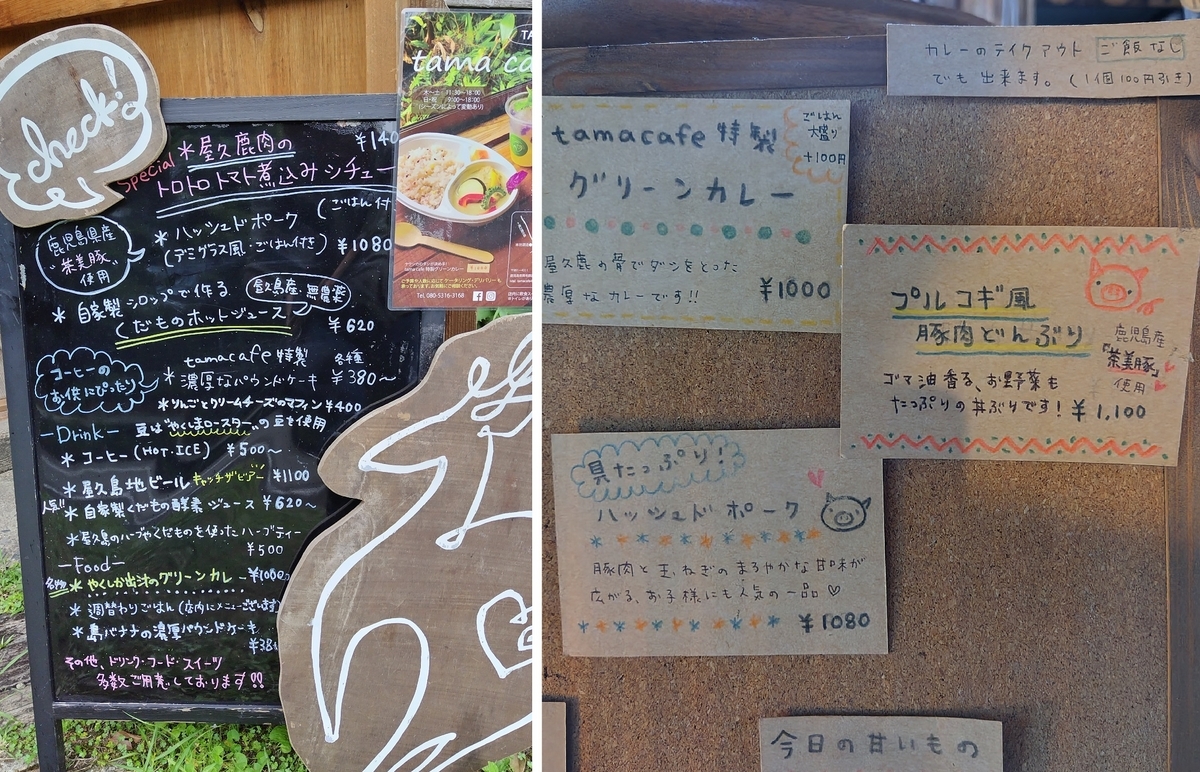 check!
Special
*屋久鹿肉の ¥140
トロトロトマト煮込みシチュー
(ごはん付
*ハッシュドポーク
(デミグラス風・ごはん付き) ¥1080
鹿児島県産
"茶美豚"
使用
*自家製シロップで作る
鹿児島産、無農薬
くだものホットジュース
¥620
コーヒーの
お供にぴったり
tamacafe特製 各種
*濃厚なパウンドケーキ ¥380~
*りんごとクリームチーズのマフィン ¥400
-Drink- 豆は"やくしまロースター"の豆を使用
*コーヒー(HOT.ICE) ¥500~
*屋久島地ビール キャッチザビアー ¥1100
人気!!
*自家製くだもの酵素ジュース ¥620~
*屋久島のハーブやくだものを使ったハーブティー
¥500
-Food-
名物
*やくしか出汁のグリーンカレー ¥1000
*週替わりごはん(店内にメニューございます
*島バナナの濃厚パウンドケーキ
¥38
その他、ドリンク・フード・スイーツ
多数ご用意しております!!
tama ca
木~土 11:30~18:00
日・祝 9:00~18:00
(シーズンによって変動あり)
tamacafe 特製グリーンカレー
Tel, 080-5316-3168
カレーのテイクアウト ご飯なし
でも出来ます。(1個100円引き)
tamacafe 特製
グリーンカレー
ごはん
大盛り
+100円
屋久鹿の骨でダシをとった
濃厚なカレーです!! ¥1000
プルコギ風
豚肉どんぶり
鹿児島産
「茶美豚」
使用
ゴマ油香る、お野菜も
たっぷりの丼ぶりです! ¥1,100
具たっぷり!
ハッシュドポーク
豚肉と玉ねぎのまろやかな甘味が
広がる、お子様にも人気の一品♡
¥1080
今日の甘いもの